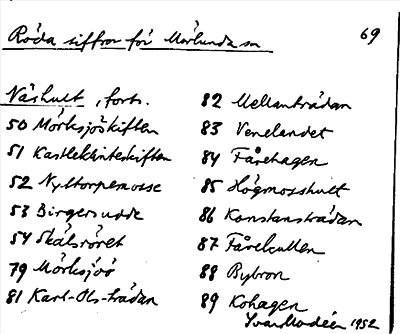 Röda siffror för Mörlunda sn
69
Näshult, forts.
50 Mörksjöskiften
51 Kastleklinteskiften
52 Nyltorpemosse
53 Birgersudde
54 Skälsröret
79 Mörksjöö
81 Karl-Ols-trädan
82 Mellanträdan
83 Venelandet
84 Fårehagen
85 Högmosshult
86 Konstansträdan
87 Fårekullen
88 Bybron
89 Kohagen
Yvar Modéer 1952